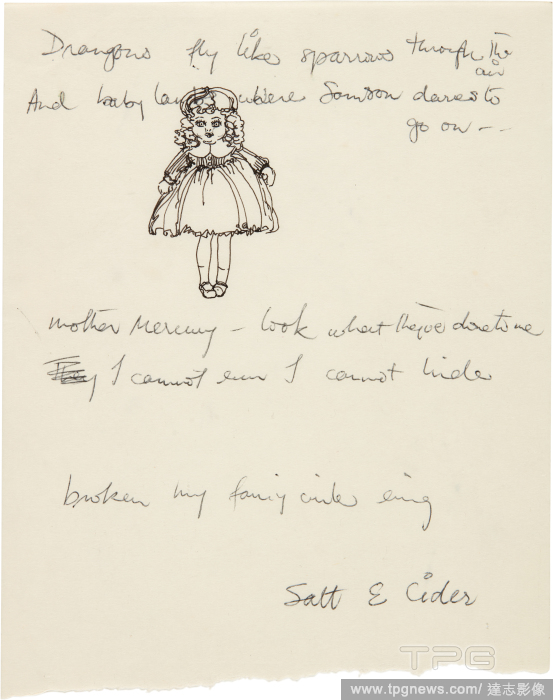 Drangons fly like sparrows through The
air
And baby lambs where Samson dares to
go on - -
mother Mercury - look what they've done to me
I cannot run I cannot hide
broken my fairy circle ring
Satt E Cider
TPG
www.tpgnews.com / 達志影像